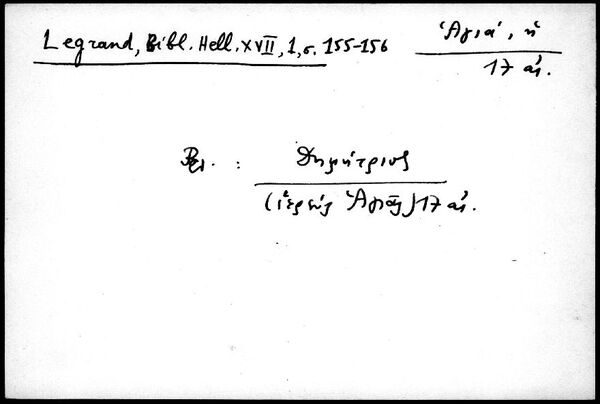 Legrand, Bibl. Hell. XVII, 1, σ. 155-156
Ἁγιά, ἡ
17 αἰ.
Βλ. : Δημήτριος
(ἱερεὺς Ἁγιᾶς) 17 αἰ.